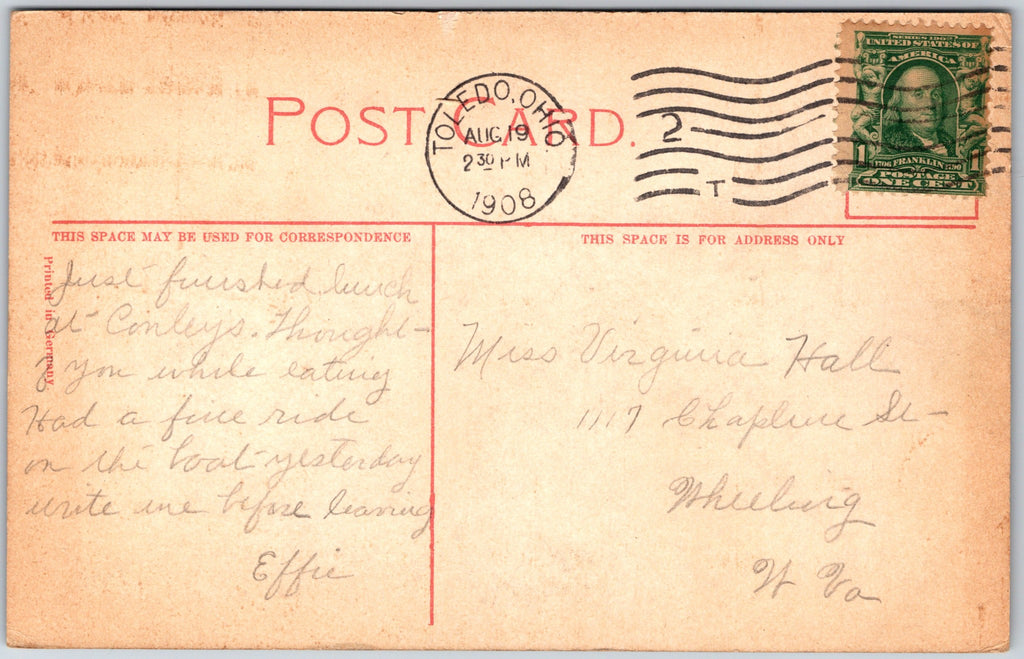 POST CARD.
TOLEDO, OHIO
AUG 19
2 30 PM
1908
2
T
SERIES 1902
UNITED STATES OF
AMERICA
1 1
1706 FRANKLIN 1790
POSTAGE
ONE CENT
THIS SPACE MAY BE USED FOR CORRESPONDENCE
THIS SPACE IS FOR ADDRESS ONLY
Printed in Germany.
Just finished lunch
at Conleys. Thought
of you while eating
Had a fine ride
on the boat yesterday
write me before leaving
Effie
Miss Virginia Hall
1117 Chapline St
Wheeling
W Va